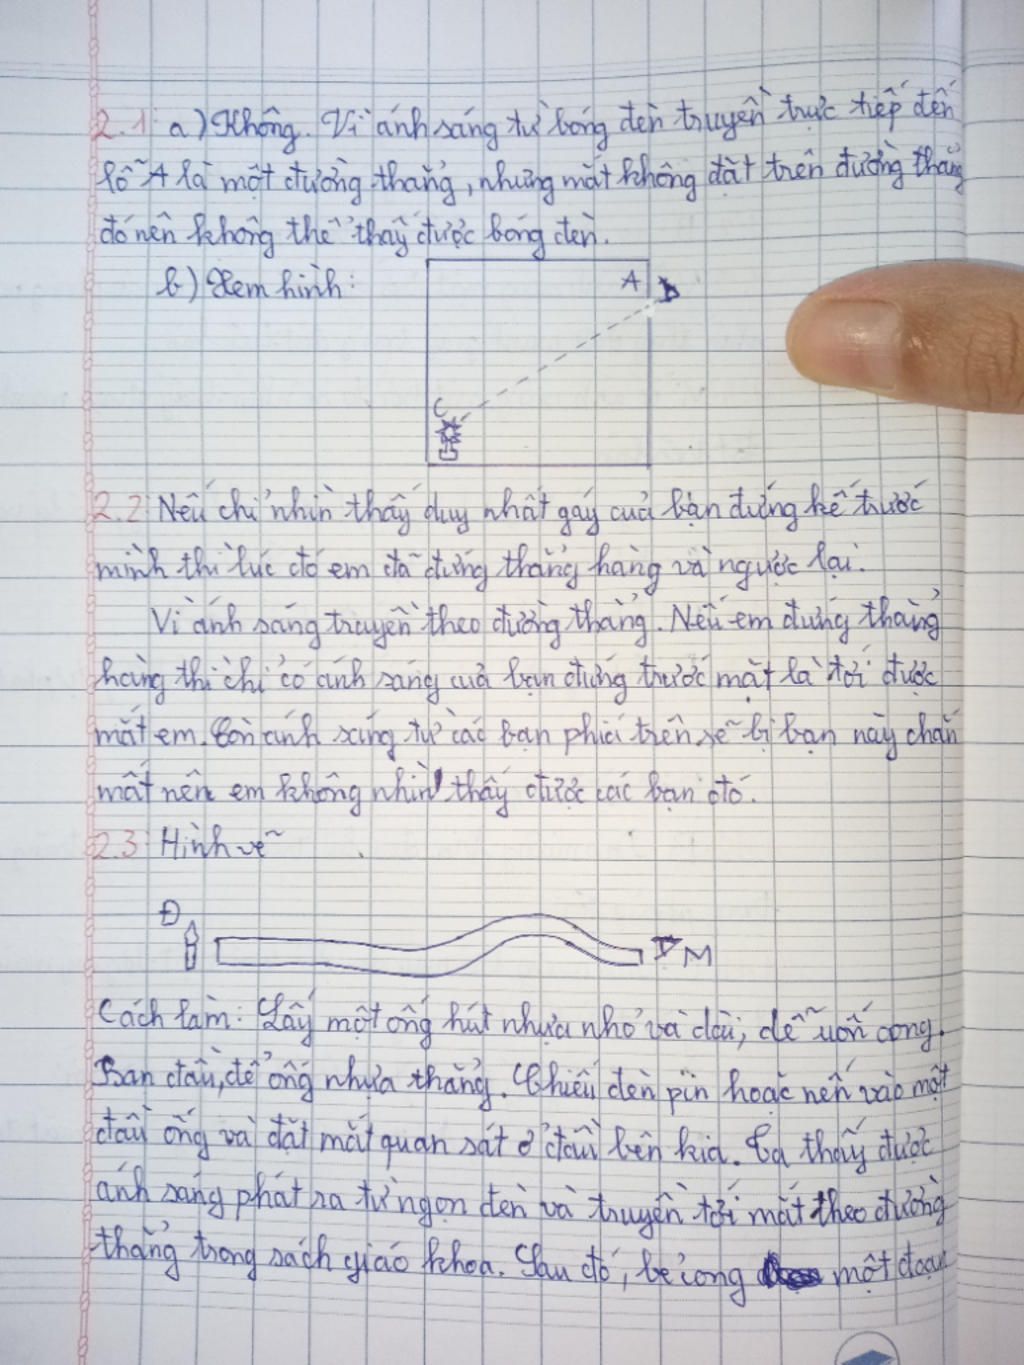 2.1: a) Không. Vì ánh sáng từ bóng đèn truyền trực tiếp đến
lỗ A là một đường thẳng, nhưng mắt không đặt trên đường thẳng
đó nên không thể thấy được bóng đèn.
b) Xem hình:
A
C
2.2: Nếu chỉ nhìn thấy duy nhất gáy của bạn đứng kề trước
mình thì lúc đó em đã đứng thẳng hàng và ngược lại.
Vì ánh sáng truyền theo đường thẳng. Nếu em đứng thẳng
hàng thì chỉ có ánh sáng của bạn đứng trước mặt là tới được
mắt em. Còn ánh sáng từ các bạn phía trên sẽ bị bạn này chắn
mất nên em không nhìn thấy được các bạn đó.
2.3: Hình vẽ
Đ
M
Cách làm: Lấy một ống hút nhựa nhỏ và dài, dễ uốn cong.
Ban đầu, để ống nhựa thẳng. Chiếu đèn pin hoặc nến vào một
đầu ống và đặt mắt quan sát ở đầu bên kia. Ta thấy được
ánh sáng phát ra từ ngọn đèn và truyền tới mắt theo đường
thẳng trong sách giáo khoa. Sau đó, bẻ cong một đoạn